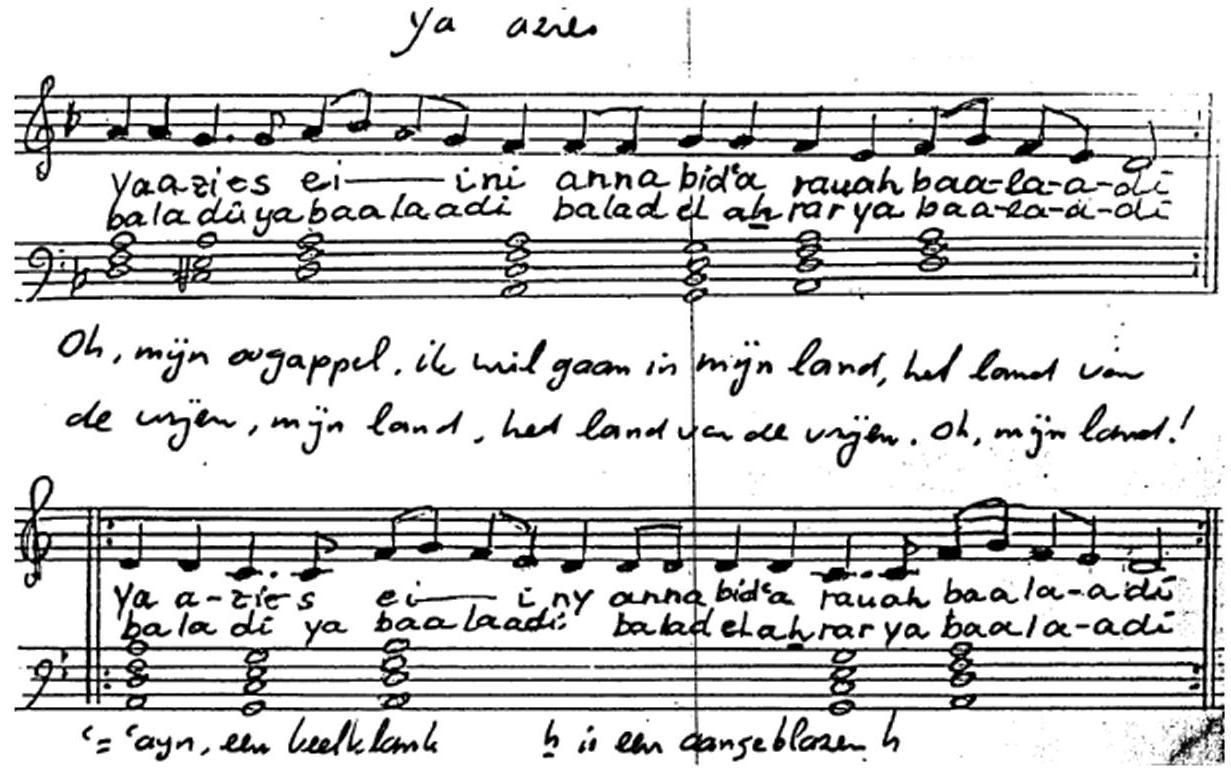 ya azies
yaazies ei——ini anna bidʿa rauah baa-la-a-di
baladūyabaalaadi balad el aẖrar ya baa-la-a-di
Oh, mijn oogappel, ik wil gaan in mijn land, het land van
de vrijen, mijn land, het land van de vrijen. Oh, mijn land!
ya a-zies ei—— iny anna bidʿa rauah baala-a di
baladi ya baalaadi balad el aẖrar ya baala-adi
ʿ = ʿayn, een keelklank ẖ is een aangeblazen h